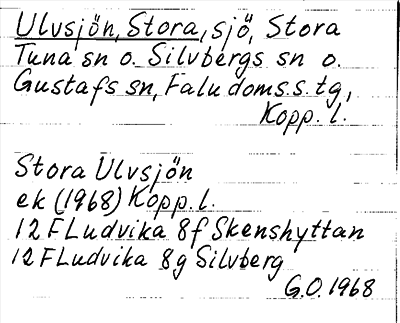 Ulvsjön, Stora, sjö, Stora
Tuna sn o. Silvbergs sn o.
Gustafs sn, Falu doms.s. tg,
Kopp. l.
Stora Ulvsjön
ek (1968) Kopp. l.
12 F Ludvika 8f Skenshyttan
12 F Ludvika 8g Silvberg
G.O. 1968